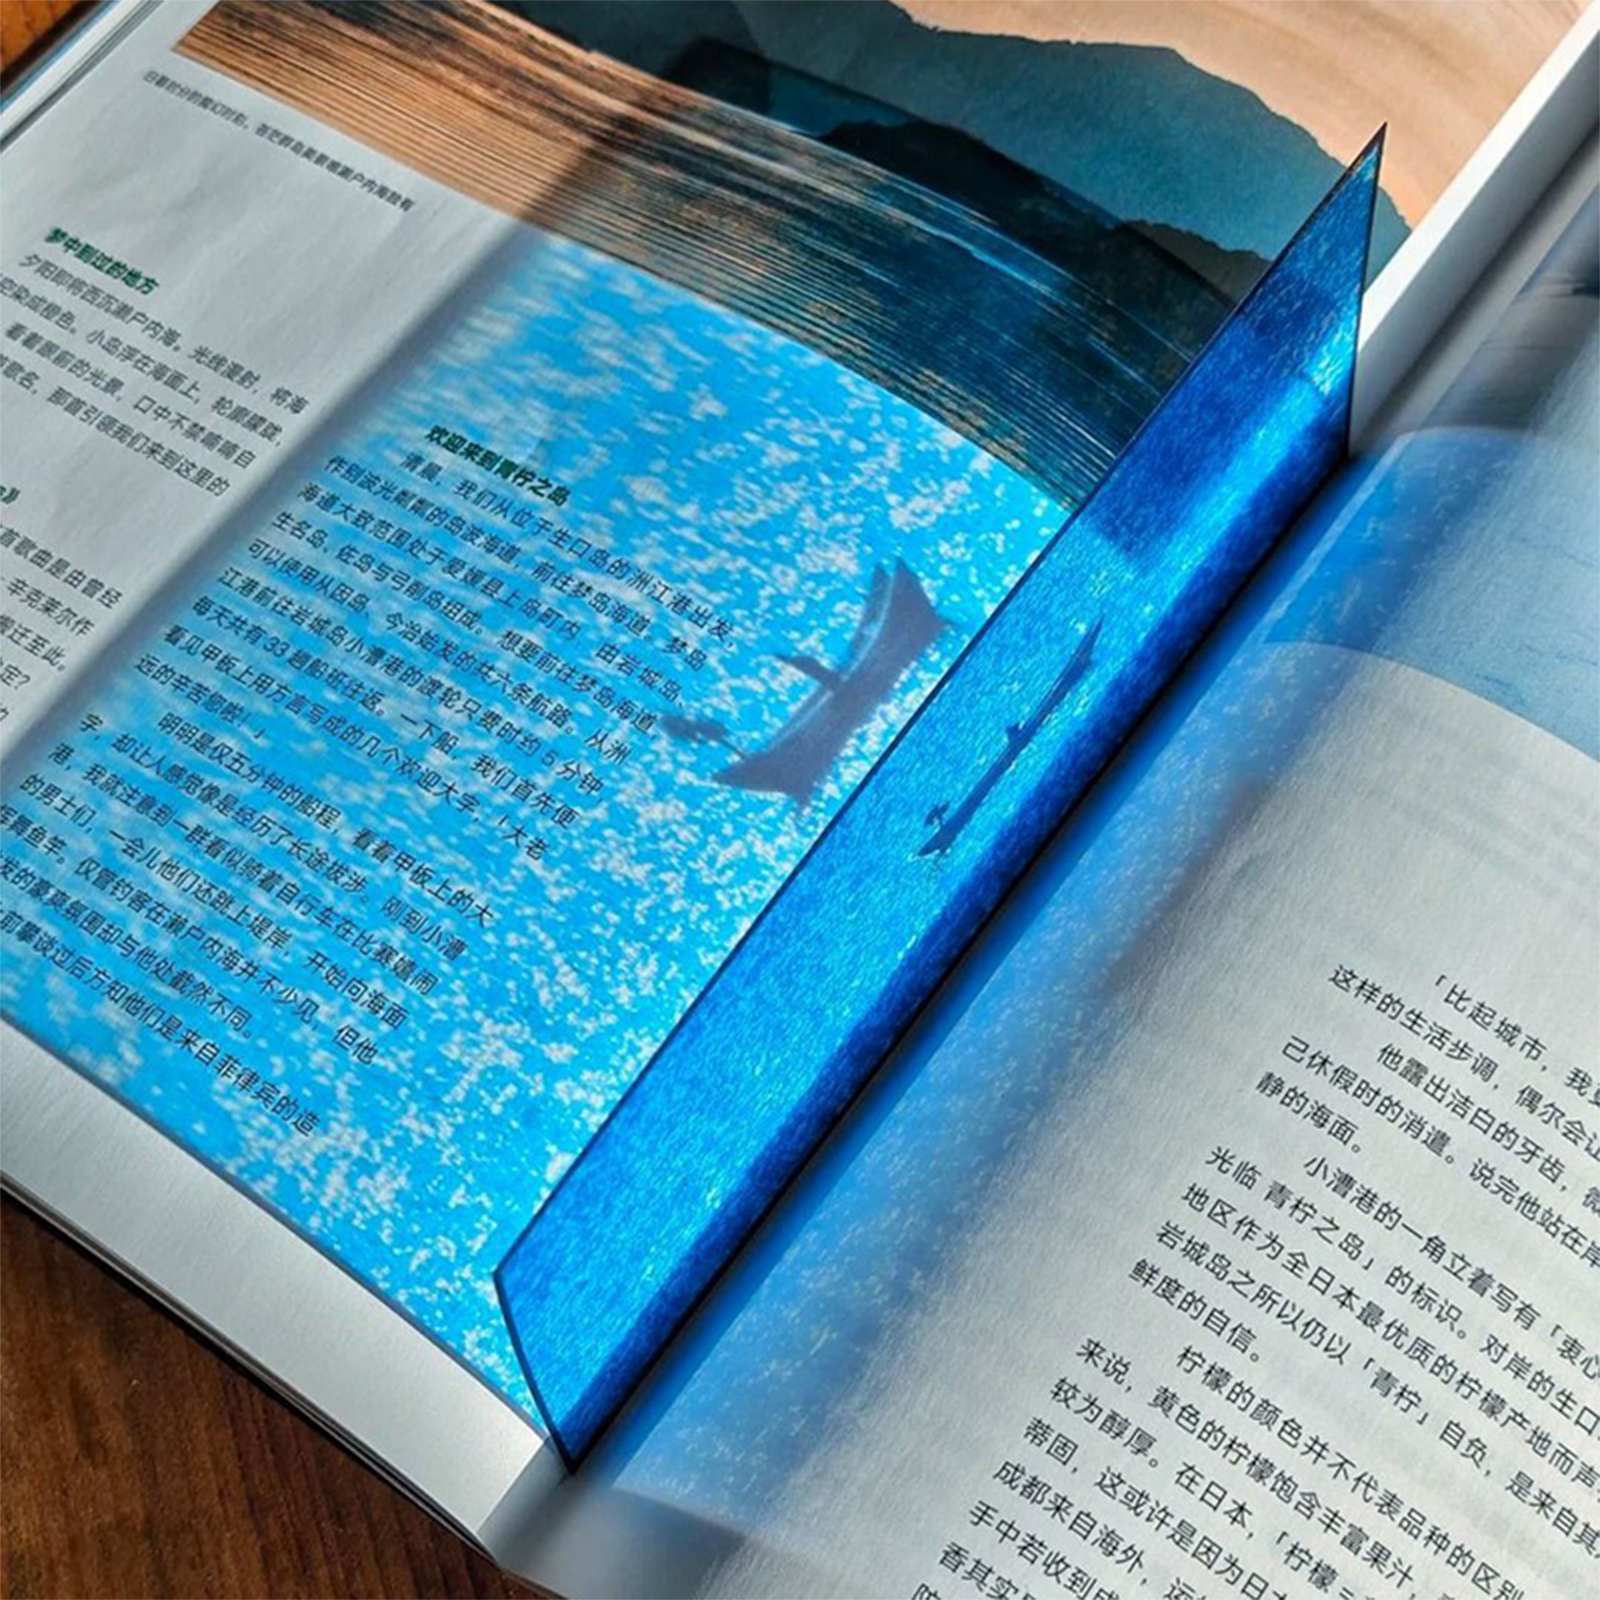 日暮时分的魔幻时刻，各芒群岛美景唯濑户内海独有
梦中到过的地方
夕阳即将西沉濑户内海。光线漫射，将海
染成橙色。小岛浮在海面上，轮廓朦胧，
看着眼前的光景，口中不禁喃喃自
歌名，那首引领我们来到这里的
首歌曲是由曾经
辛克莱尔作
搬迁至此。
定？
的
欢迎来到青柠之岛
清晨，我们从位于生口岛的洲江港出发，
作别波光粼粼的岛波海道，前往梦岛海道。梦岛
海道大致范围处于爱媛县上岛町内，由岩城岛、
生名岛、佐岛与弓削岛组成。想要前往梦岛海道
可以使用从因岛、今治始发的共六条航路。从洲
江港前往岩城岛小漕港的渡轮只费时约 5 分钟，
每天共有 33 趟船班往返。一下船，我们首先便
看见甲板上用方言写成的几个欢迎大字，「大老
远的辛苦您啦！」
明明是仅五分钟的船程，看着甲板上的大
字，却让人感觉像是经历了长途拔涉。刚到小漕
港，我就注意到一群看似骑着自行车在比赛嬉闹
的男士们，一会儿他们还跳上堤岸，开始向海面
挥舞鱼竿。仅管钓客在濑户内海并不少见，但他
发的豪爽氛围却与他处截然不同。
前攀谈过后方知他们是来自菲律宾的造
「比起城市，我更
这样的生活步调，偶尔会让
他露出洁白的牙齿，微
己休假时的消遣。说完他站在岸
静的海面。
小漕港的一角立着写有「衷心
光临 青柠之岛」的标识。对岸的生口
地区作为全日本最优质的柠檬产地而声
岩城岛之所以仍以「青柠」自负，是来自其
鲜度的自信。
柠檬的颜色并不代表品种的区别
来说，黄色的柠檬饱含丰富果汁，
较为醇厚。在日本，「柠檬＝
蒂固，这或许是因为日本
成都来自海外，运
手中若收到成
香其实
防